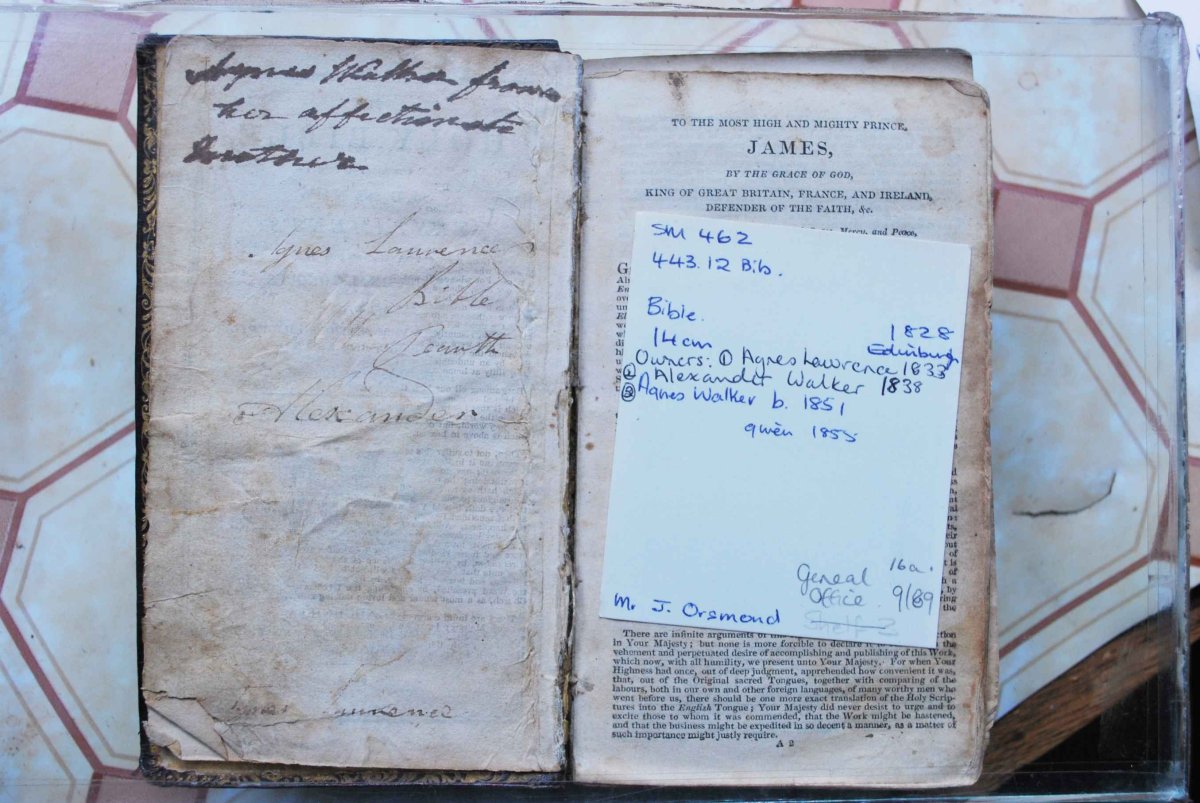 Agnes Walker from
her affectionate
Agnes Laurence
Bible
Alexander
Agnes Laurence
TO THE MOST HIGH AND MIGHTY PRINCE,
JAMES,
BY THE GRACE OF GOD,
KING OF GREAT BRITAIN, FRANCE, AND IRELAND,
DEFENDER OF THE FAITH, &c.
Mercy, and Peace,
SM 462
443.12 Bib.
Bible.
1828
14cm
Edinburgh
Owners: ① Agnes Lawrence 1833
② Alexander Walker 1838
③ Agnes Walker b. 1851
given 1855
16a.
General
Office 9/89
Shelf 3
Mr J. Orsmond
There are infinite arguments of
in Your Majesty; but none is more forcible to declare it to
vehement and perpetuated desire of accomplishing and publishing of this Work,
which now, with all humility, we present unto Your Majesty. For when Your
Highness had once, out of deep judgment, apprehended how convenient it was,
that, out of the Original sacred Tongues, together with comparing of the
labours, both in our own and other foreign languages, of many worthy men who
went before us, there should be one more exact translation of the Holy Scrip-
tures into the English Tongue; Your Majesty did never desist to urge and to
excite those to whom it was commended, that the Work might be hastened,
and that the business might be expedited in so decent a manner, as a matter of
such importance might justly require.
A 2